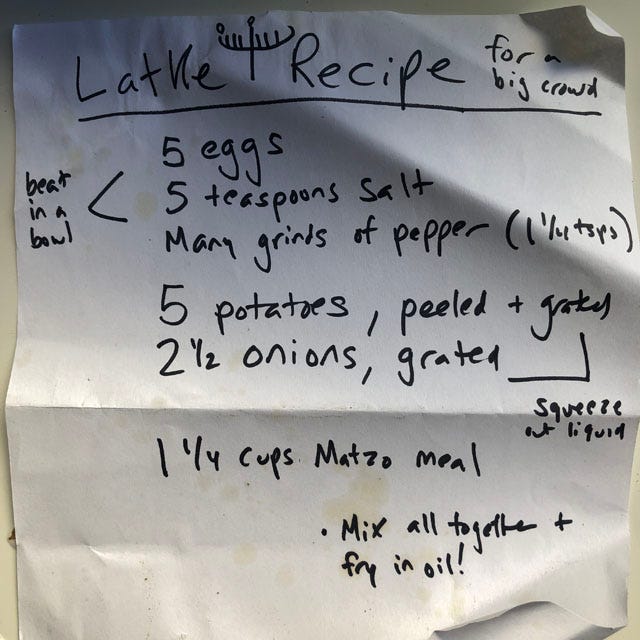 Latke Recipe
for a
big crowd
beat
in a
bowl
5 eggs
5 teaspoons salt
Many grinds of pepper (1 1/4 tsps)
5 potatoes, peeled + grated
2 1/2 onions, grated
squeeze
out liquid
1 1/4 cups Matzo meal
• Mix all together +
fry in oil!